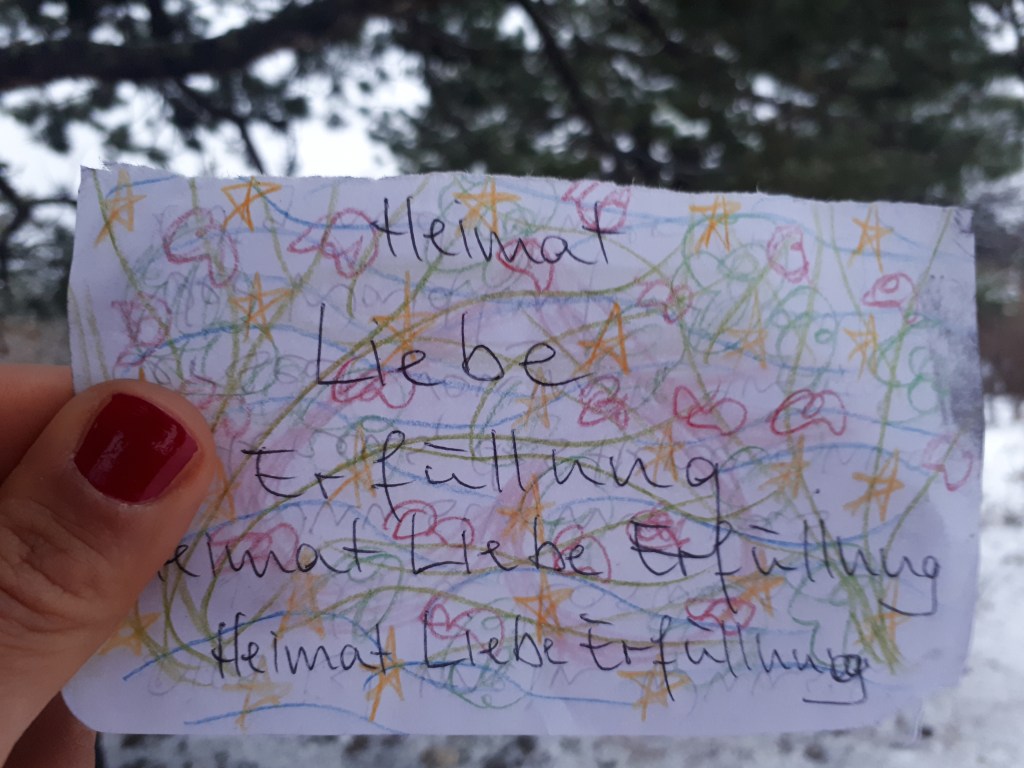 Heimat
Liebe
Erfüllung
eimat Liebe Erfüllung
Heimat Liebe Erfüllung